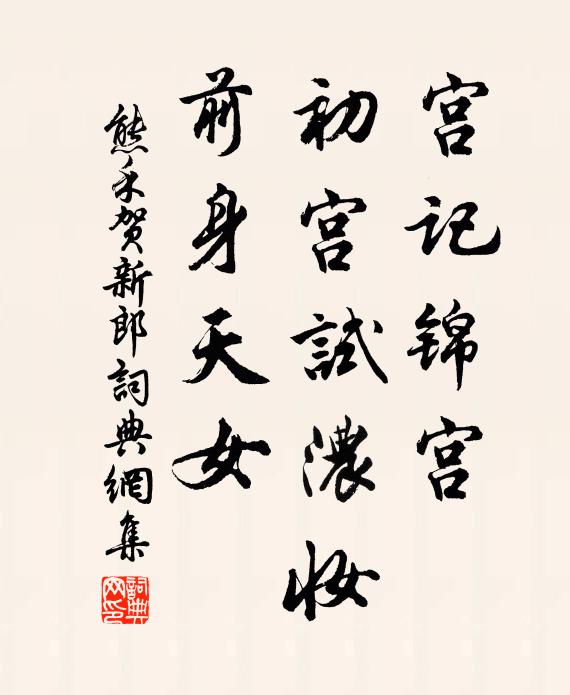 宫记锦宫
初宫試濃妆
前身天女
熊禾贺新郎詞典網集
詞典网印